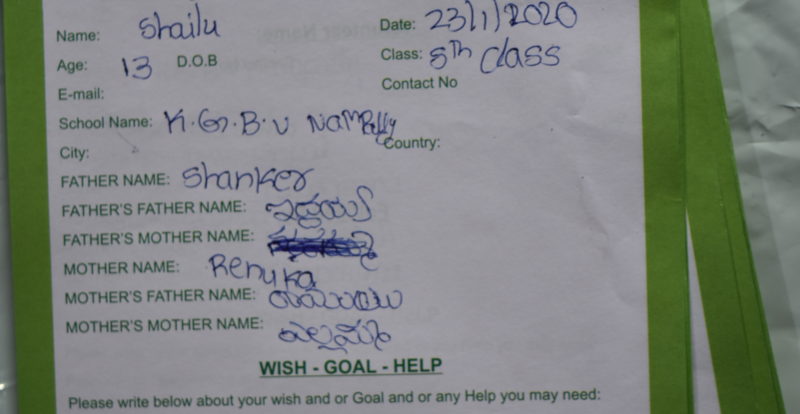 Name: Shailu Date: 23/1/2020
Age: 13 D.O.B Class: 8th Class
E-mail: Contact No
School Name: K.G.B.V Nampally
City: Country:
FATHER NAME: Shanker
FATHER'S FATHER NAME:
FATHER'S MOTHER NAME:
MOTHER NAME: Renuka
MOTHER'S FATHER NAME: రామయ
MOTHER'S MOTHER NAME: ఎల్లమ్మ
WISH - GOAL - HELP
Please write below about your wish and or Goal and or any Help you may need: